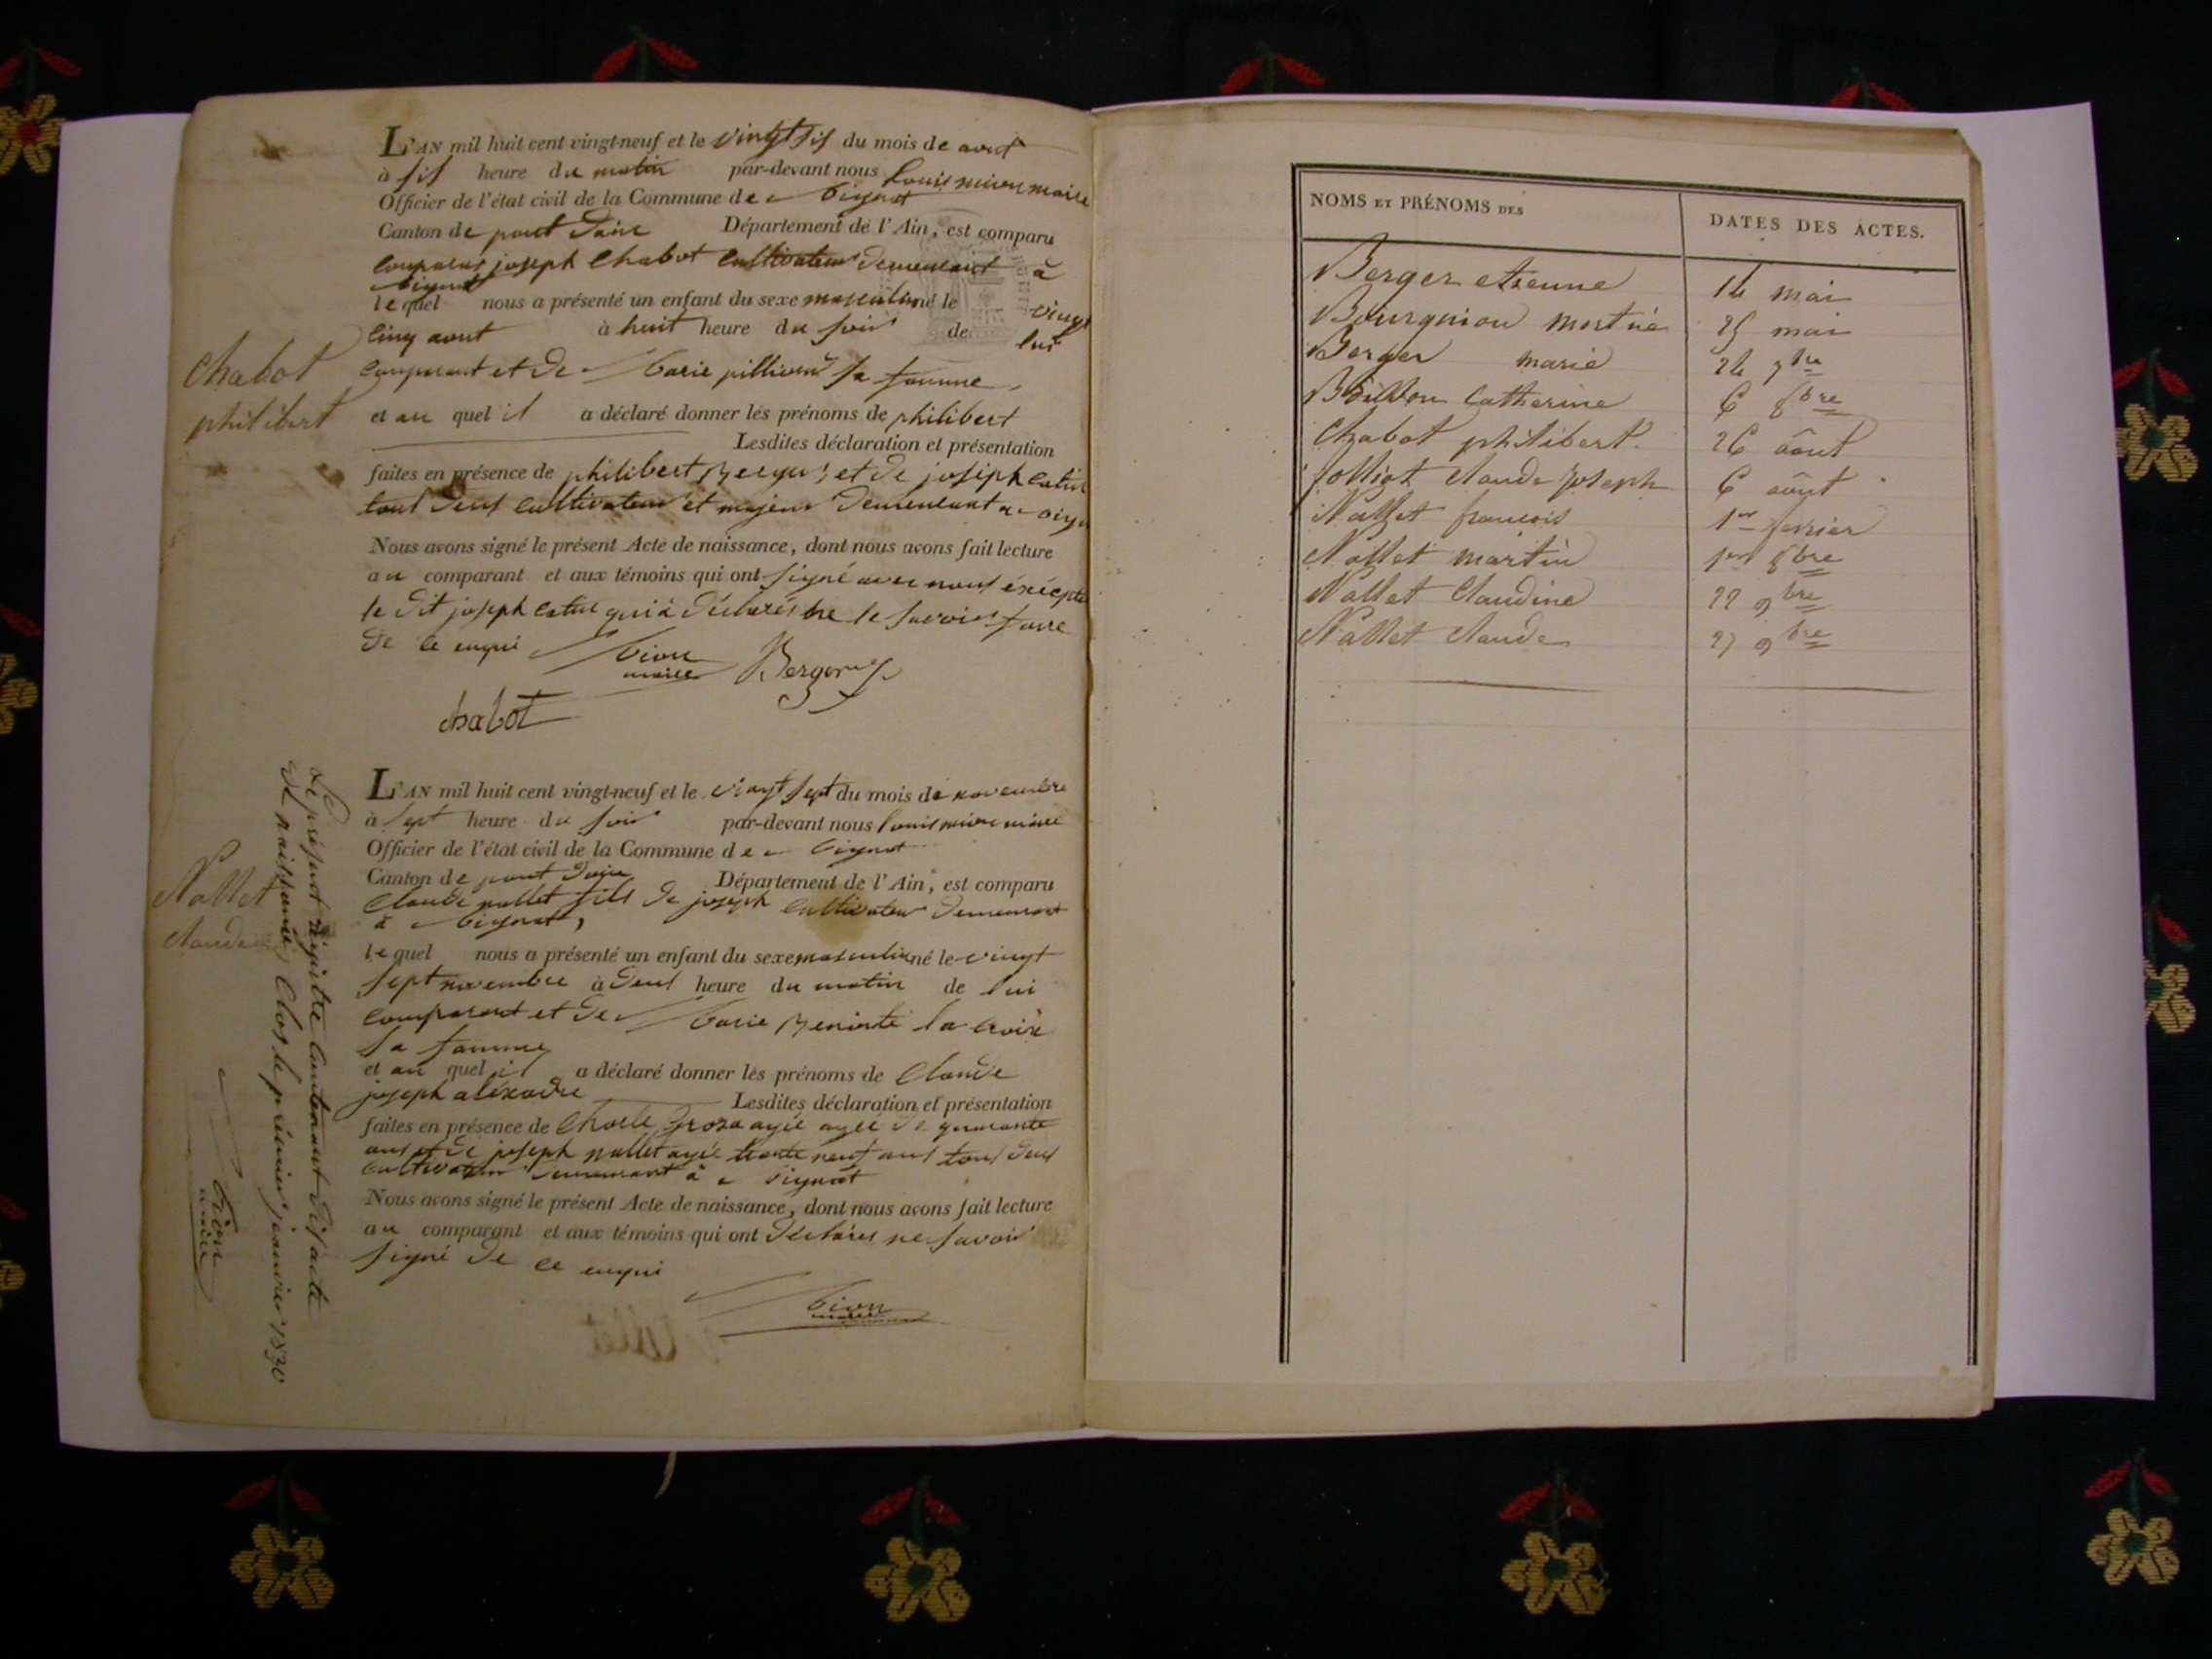 L'AN mil huit cent vingt-neuf et le vingt sis du mois de aout
à sis heure du matin par-devant nous Louis maire
Officier de l'état civil de la Commune de
Canton de pont Dain Département de l'Ain, est comparu
joseph Chabot Cultivateur demeurant à
lequel nous a présenté un enfant du sexe masculin né le vingt
Cinq aout à huit heure du soir de lui
Comparant et de Marie sa famme
Chabot
philibert
et au quel il a déclaré donner les prénoms de philibert
Lesdites déclaration et présentation
faites en présence de philibert et de joseph
tous deus Cultivateur et majeur demeurant a
Nous avons signé le présent Acte de naissance, dont nous avons fait lecture
au comparant et aux témoins qui ont signé avec nous éxcépté
le dit joseph qui à déclaré ne le savoir faire
de ce enqui
maire Berger
chabot
L'AN mil huit cent vingt-neuf et le vingt sept du mois de novembre
à sept heure du soir par-devant nous Louis maire
Officier de l'état civil de la Commune de
Canton de pont Dain Département de l'Ain, est comparu
Claude nallet fils de joseph Cultivateur demeurant
à
lequel nous a présenté un enfant du sexe masculin né le vingt
sept novembre à deus heure du matin de lui
Comparant et de Marie la Croix
sa famme
Nallet
claude
et au quel il a déclaré donner les prénoms de Claude
joseph aléxadre
Lesdites déclaration et présentation
faites en présence de Charle agée de quarante
ans et de joseph nallet agée trante neuf ans tous deus
Cultivateur demeurant à
Nous avons signé le présent Acte de naissance, dont nous avons fait lecture
au comparant et aux témoins qui ont déclarés ne savoir
signé de ce enqui
maire
Le présent régistre Contenant dis acte
de naissance, Clos le premier janvier 1830
maire
NOMS ET PRÉNOMS DES DATES DES ACTES.
Berger etienne 14 mai
mort né 25 mai
Berger marie 24 7bre
Catherine 6 8bre
Chabot philibert. 26 aôut
Jolliot claude joseph 6 aôut
Nallet francois 1er fevrier
Nallet martin 1er 8bre
Nallet Claudine 22 9bre
Nallet claude 27 9bre